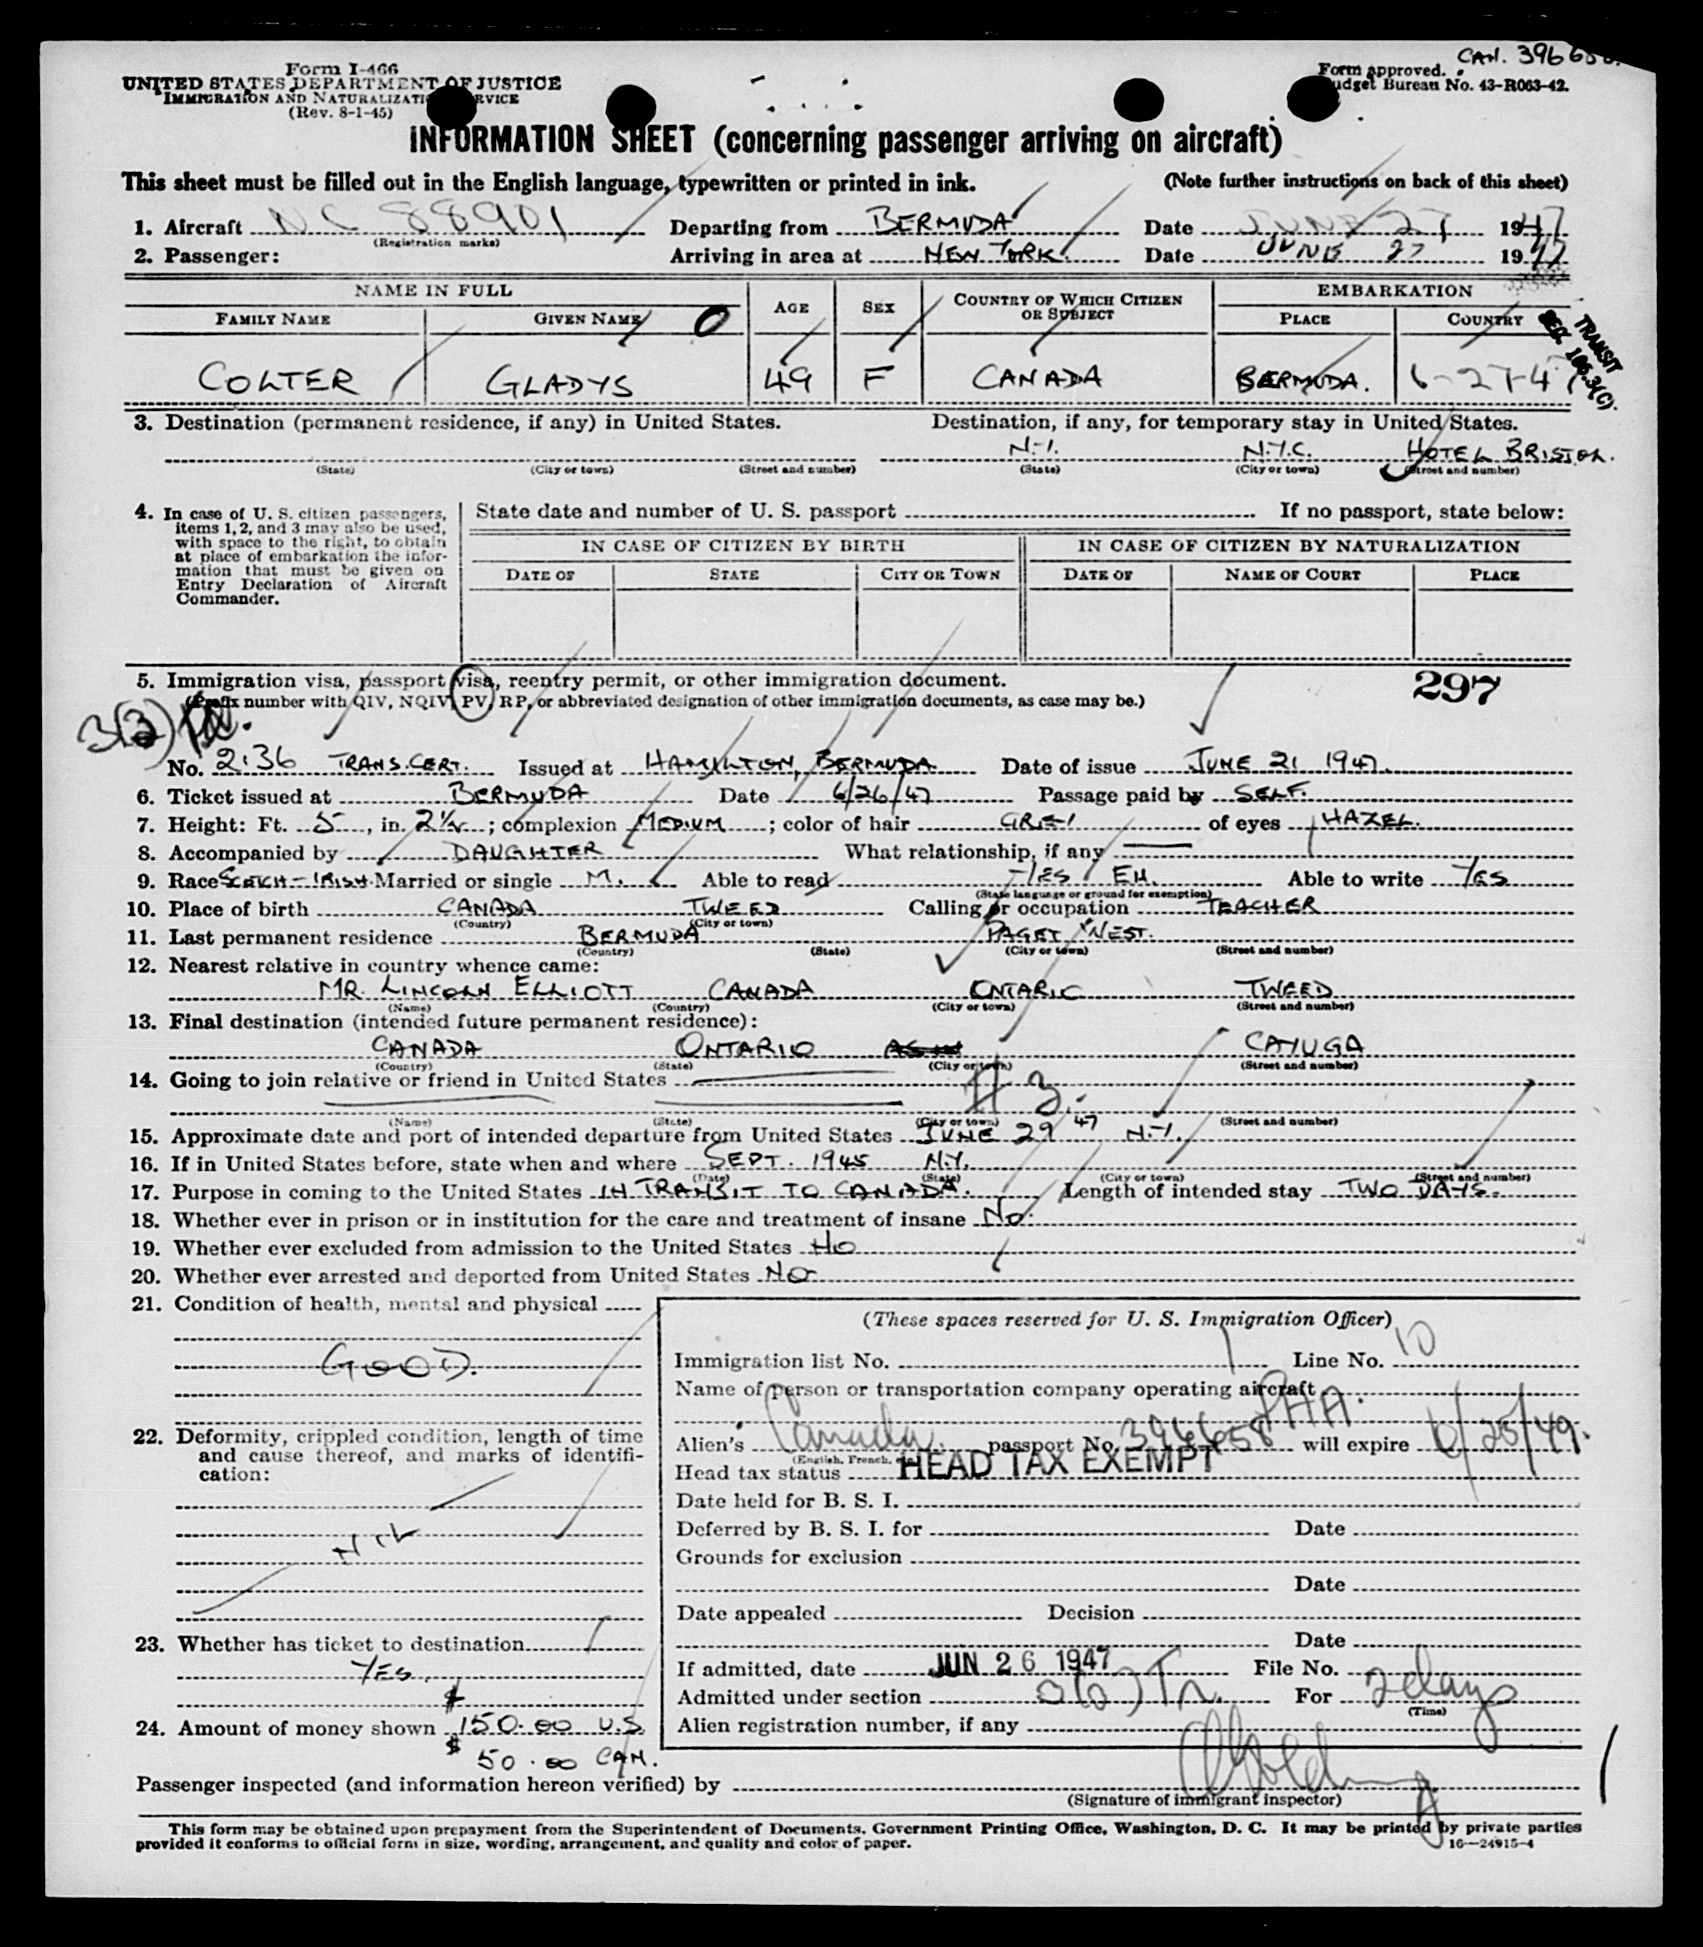 CAN. 396658
Form I-466
UNITED STATES DEPARTMENT OF JUSTICE
IMMIGRATION AND NATURALIZATION SERVICE
(Rev. 8-1-45)
Form approved.
Budget Bureau No. 43-R063-42.
INFORMATION SHEET (concerning passenger arriving on aircraft)
This sheet must be filled out in the English language, typewritten or printed in ink. (Note further instructions on back of this sheet)
1. Aircraft NC 88901 Departing from BERMUDA Date JUNE 27 1947
(Registration marks)
2. Passenger: Arriving in area at NEW YORK. Date JUNE 27 1947
NAME IN FULL AGE SEX COUNTRY OF WHICH CITIZEN OR SUBJECT EMBARKATION
FAMILY NAME GIVEN NAME PLACE COUNTRY
TRANSIT
SEC. 106.3(C)
COLTER GLADYS 49 F CANADA BERMUDA. 6-27-47
3. Destination (permanent residence, if any) in United States. Destination, if any, for temporary stay in United States.
N.Y. N.Y.C. HOTEL BRISTOL.
(State) (City or town) (Street and number) (State) (City or town) (Street and number)
4. In case of U. S. citizen passengers, items 1, 2, and 3 may also be used, with space to the right, to obtain at place of embarkation the information that must be given on Entry Declaration of Aircraft Commander.
State date and number of U. S. passport If no passport, state below:
IN CASE OF CITIZEN BY BIRTH IN CASE OF CITIZEN BY NATURALIZATION
DATE OF STATE CITY OR TOWN DATE OF NAME OF COURT PLACE
5. Immigration visa, passport visa, reentry permit, or other immigration document. 297
(Prefix number with QIV, NQIV, PV, RP, or abbreviated designation of other immigration documents, as case may be.)
3(2)
No. 2136 TRANS. CERT. Issued at HAMILTON, BERMUDA Date of issue JUNE 21 1947.
6. Ticket issued at BERMUDA Date 6/26/47 Passage paid by SELF.
7. Height: Ft. 5, in. 2½; complexion MEDIUM; color of hair GREY of eyes HAZEL.
8. Accompanied by DAUGHTER What relationship, if any
9. Race SCOTCH-IRISH. Married or single M. Able to read YES EN. Able to write YES
(State language or ground for exemption)
10. Place of birth CANADA TWEED Calling or occupation TEACHER
(Country) (City or town)
11. Last permanent residence BERMUDA PAGET WEST.
(Country) (State) (City or town) (Street and number)
12. Nearest relative in country whence came:
MR. LINCOLN ELLIOTT CANADA ONTARIO TWEED
(Name) (Country) (City or town) (Street and number)
13. Final destination (intended future permanent residence):
CANADA ONTARIO CAYUGA
(Country) (State) (City or town) (Street and number)
14. Going to join relative or friend in United States
# 3.
(Name) (State) (City or town) (Street and number)
15. Approximate date and port of intended departure from United States JUNE 29 47 N.Y.
16. If in United States before, state when and where SEPT. 1945 N.Y.
(Date) (State) (City or town) (Street and number)
17. Purpose in coming to the United States IN TRANSIT TO CANADA. Length of intended stay TWO DAYS.
18. Whether ever in prison or in institution for the care and treatment of insane NO.
19. Whether ever excluded from admission to the United States NO
20. Whether ever arrested and deported from United States NO
21. Condition of health, mental and physical
GOOD.
22. Deformity, crippled condition, length of time and cause thereof, and marks of identification:
NIL
23. Whether has ticket to destination
YES.
24. Amount of money shown $150.00 U.S
$50.00 CAN.
(These spaces reserved for U. S. Immigration Officer)
Immigration list No. 1 Line No. 10
Name of person or transportation company operating aircraft
PAA.
Alien's Canada passport No. 396658 will expire 6/25/49.
(English, French, etc.)
Head tax status HEAD TAX EXEMPT
Date held for B. S. I.
Deferred by B. S. I. for Date
Grounds for exclusion
Date
Date appealed Decision
Date
If admitted, date JUN 26 1947 File No.
Admitted under section 3(2) Tr. For 2 days
(Time)
Alien registration number, if any
Passenger inspected (and information hereon verified) by
(Signature of immigrant inspector)
This form may be obtained upon prepayment from the Superintendent of Documents, Government Printing Office, Washington, D. C. It may be printed by private parties
provided it conforms to official form in size, wording, arrangement, and quality and color of paper. 16—24915-4